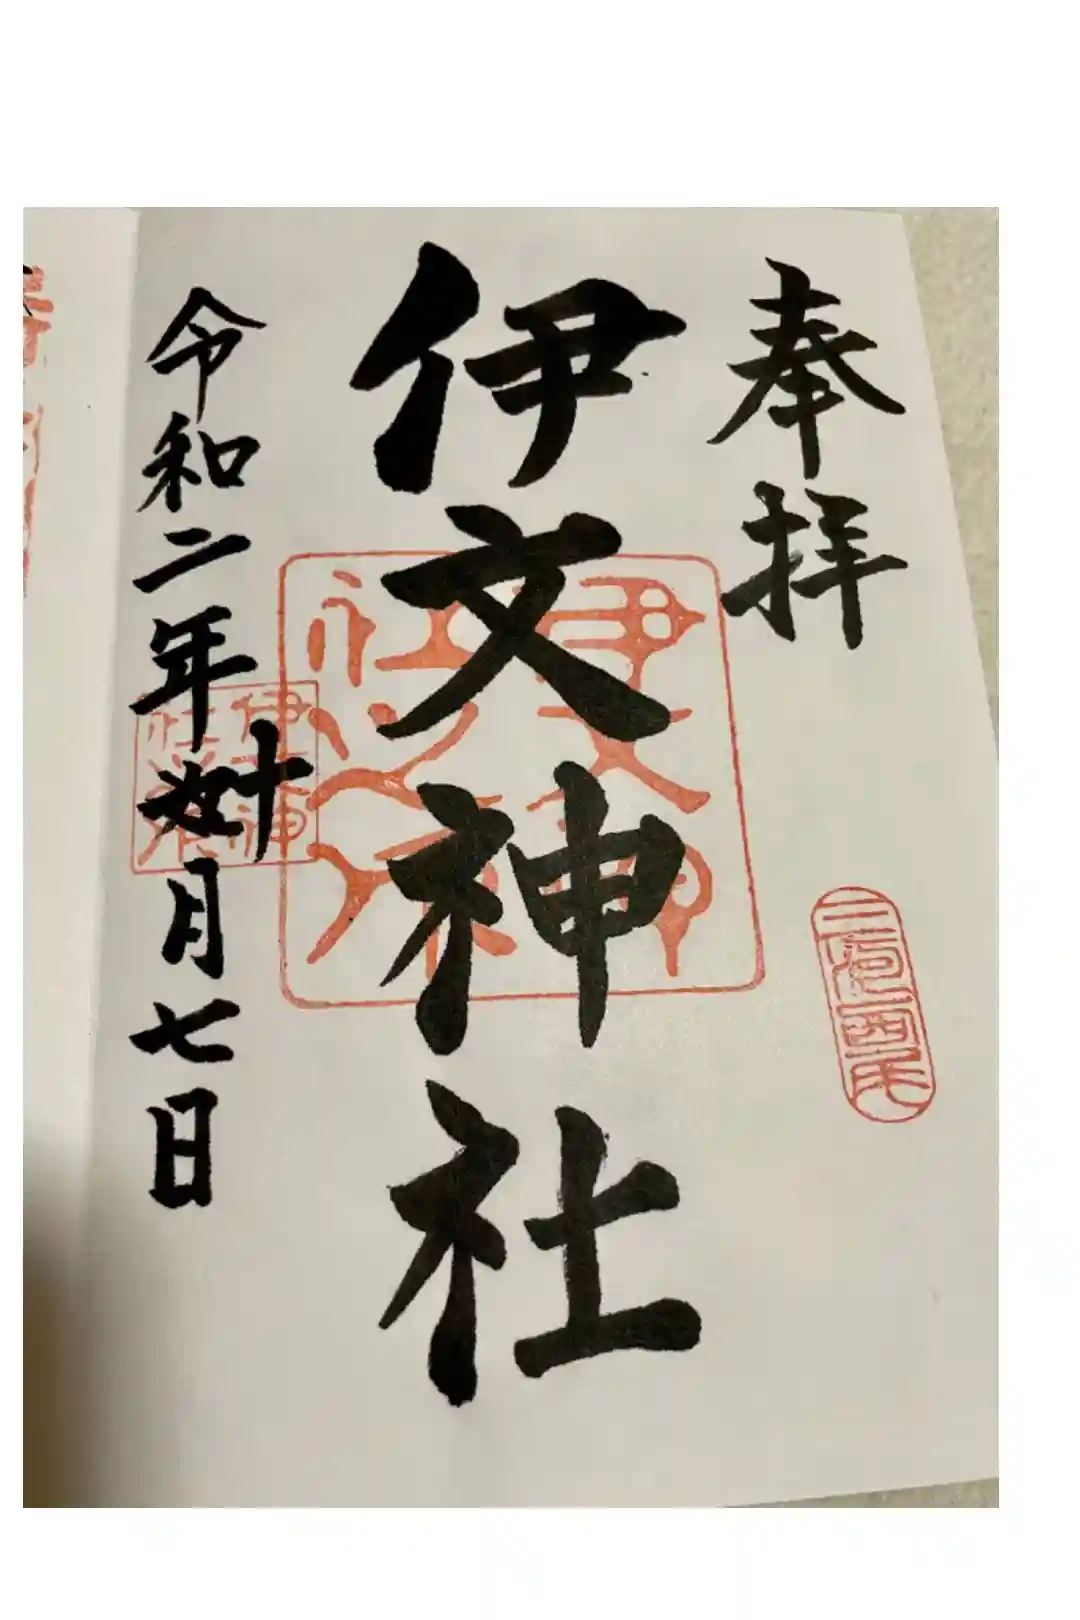 奉拝
三河西尾
伊文神社
伊文神社之印
令和二年十月七日